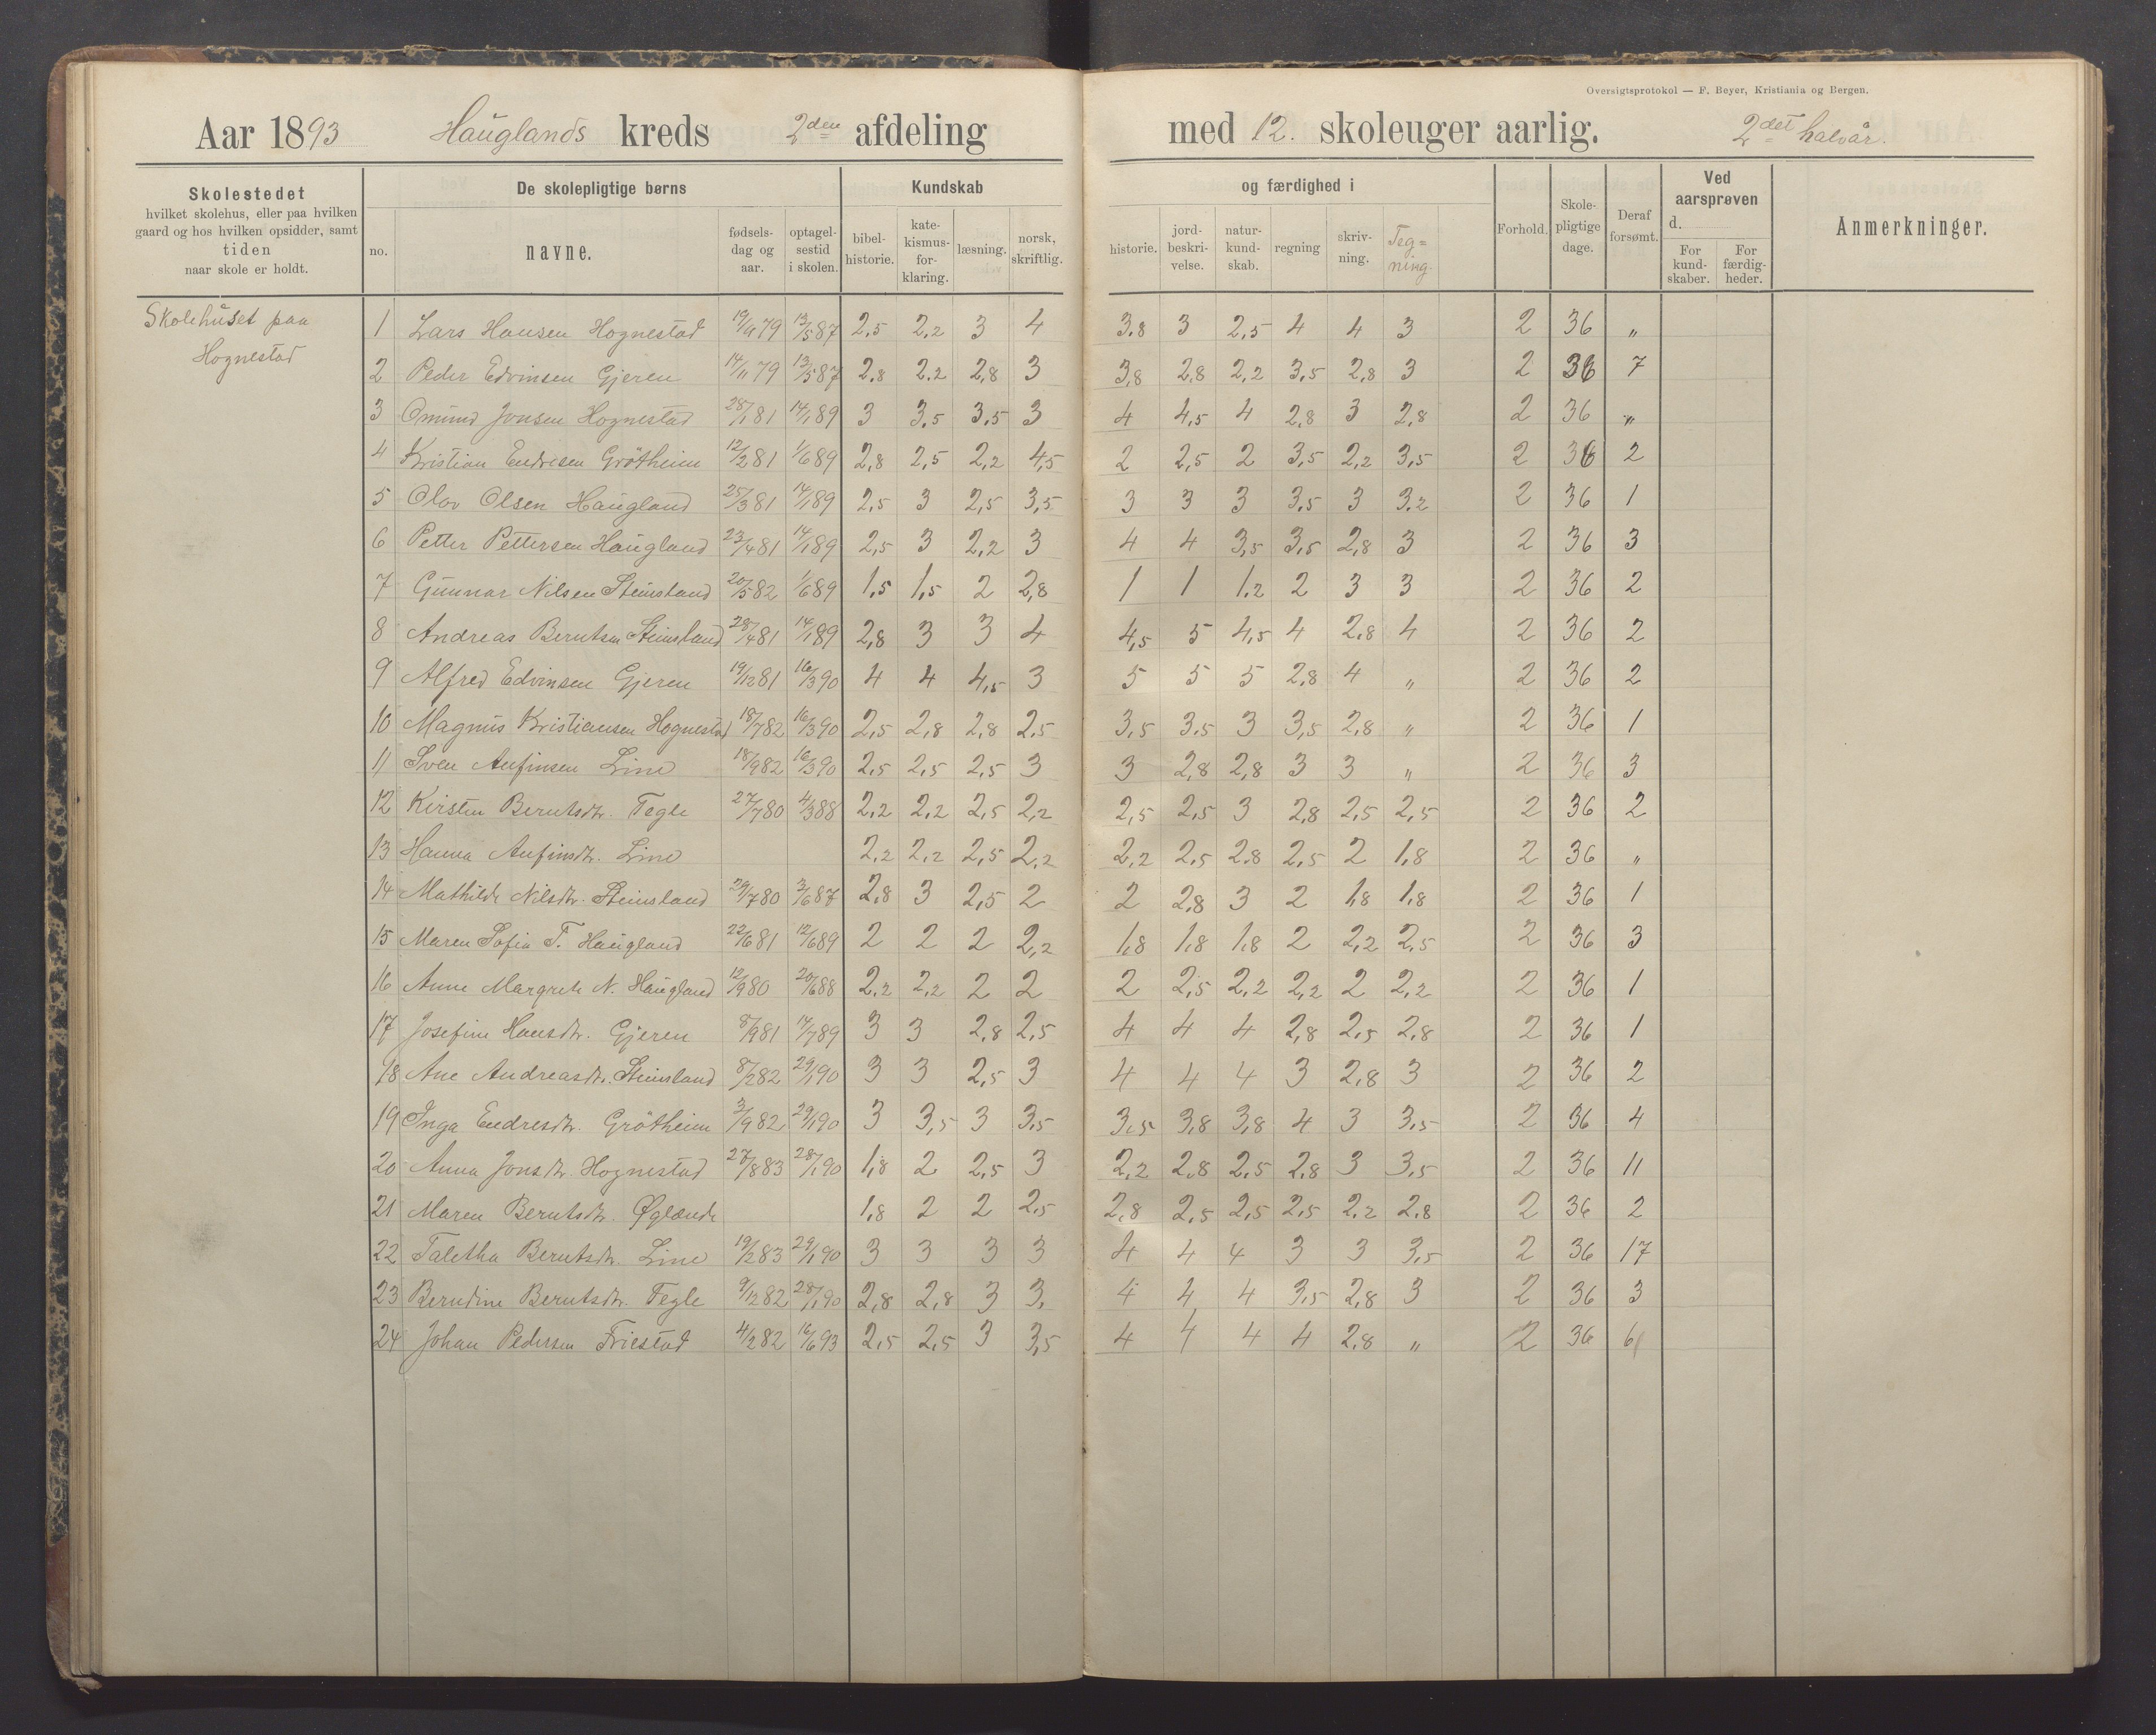 Oversigtsprotokol — F. Beyer, Kristiania og Bergen.
Aar 1893 Hauglands kreds 2den afdeling med 12. skoleuger aarlig. 2det halvår.
Skolestedet
hvilket skolehus, eller paa hvilken
gaard og hos hvilken opsidder, samt
tiden
naar skole er holdt.
De skolepligtige børns
no.
navne.
fødsels-
dag og
aar.
optagel-
sestid
i skolen.
Kundskab
bibel-
historie.
kate-
kismus-
for-
klaring.
læsning.
norsk,
skriftlig.
og færdighed i
historie.
jord-
beskri-
velse.
natur-
kund-
skab.
regning
skriv-
ning.
Teg=
ning.
Forhold.
Skole-
pligtige
dage.
Deraf
forsømt.
Ved
aarsprøven
d.
For
kund-
skaber.
For
færdig-
heder.
Anmerkninger.
Skolehuset paa
Hognestad
1 Lars Hansen Hognestad 19/9 79 13/5 87 2,5 2,2 3 4 3.8 3 2,5 4 4 3 2 36 „
2 Peder Edvinsen Gjeren 14/11 79 13/5 87 2,8 2,2 2,8 3 3,8 2,8 2,2 3,5 2,8 3 2 36 7
3 Omund Jonsen Hognestad 28/1 81 14/1 89 3 3,5 3,5 3 4 4,5 4 2,8 3 2,8 2 36 „
4 Kristian Endresen Grötheim 12/2 81 1/6 89 2,8 2,5 2,2 4,5 2 2,5 2 3,5 2,2 3,5 2 36 2
5 Olov Olsen Haugland 25/3 81 14/1 89 2,5 3 2,5 3,5 3 3 3 3,5 3 3.2 2 36 1
6 Petter Pettersen Haugland 23/4 81 14/1 89 2,5 3 2,2 3 4 4 3,5 3,5 2,8 3 2 36 3
7 Gunnar Nilsen Steinsland 20/5 82 1/6 89 1,5 1,5 2 2,8 1 1 1,2 2 3 3 2 36 2
8 Andreas Berntsen Steinsland 28/4 81 14/1 89 2,8 3 3 4 4,5 5 4,5 4 2,8 4 2 36 2
9 Alfred Edvinsen Gjeren 19/12 81 16/3 90 4 4 4,5 3 5 5 5 2,8 4 „ 2 36 2
10 Magnus Kristiansen Hognestad 18/7 82 16/3 90 2,5 2,8 2,8 2,5 3,5 3,5 3 3,5 2,8 „ 2 36 1
11 Sven Anfinsen Line 18/9 82 16/3 90 2,5 2,5 2,5 3 3 2,8 2,8 3 3 „ 2 36 3
12 Kirsten Berntsdtr. Tegle 27/7 80 4/3 88 2,2 2,2 2,5 2,2 2,5 2,5 3 2,8 2,5 2,5 2 36 2
13 Hanna Anfinsdtr. Line 2,2 2,2 2,5 2,2 2,2 2,5 2,8 2,5 2 1,8 2 36 „
14 Mathilde Nilsdtr. Steinsland 29/7 80 3/6 87 2,8 3 2,5 2 2 2,8 3 2 1,8 1,8 2 36 1
15 Maren Sofia T. Haugland 22/6 81 12/6 89 2 2 2 2,2 1,8 1,8 1,8 2 2,2 2,5 2 36 3
16 Anne Margrete N. Haugland 12/9 80 20/6 88 2,2 2,2 2 2 2 2,5 2,2 2,2 2 2,2 2 36 1
17 Josefine Hansdtr. Gjeren 8/9 81 17/7 89 3 3 2,8 2,5 4 4 4 2,8 2,5 2,8 2 36 1
18 Ane Andreasdtr. Steinsland 8/2 82 29/1 90 3 3 2,5 3 4 4 4 3 2,8 3 2 36 2
19 Inga Endresdtr. Grötheim 3/9 82 29/1 90 3 3,5 3 3,5 3,5 3,8 3,8 4 3 3,5 2 36 4
20 Anna Jonsdtr. Hognestad 27/8 83 28/1 90 1,8 2 2,5 3 2,2 2,8 2,5 2,8 3 3,5 2 36 11
21 Maren Berntsdtr. Øglænde 1,8 2 2 2,5 2,8 2,5 2,5 2,5 2,2 2,8 2 36 2
22 Taletha Berntsdtr. Line 19/2 83 29/1 90 3 3 3 3 4 4 4 3 3 3,5 2 36 17
23 Berndine Berntsdtr. Tegle 9/12 82 28/1 90 2,8 2,8 3 3, 4 4 4 3,5 2,8 3 2 36 3
24 Johan Pedersen Friestad 4/2 82 16/6 93 2,5 2,5 3 3,5 4 4 4 4 2,8 „ 2 36 6